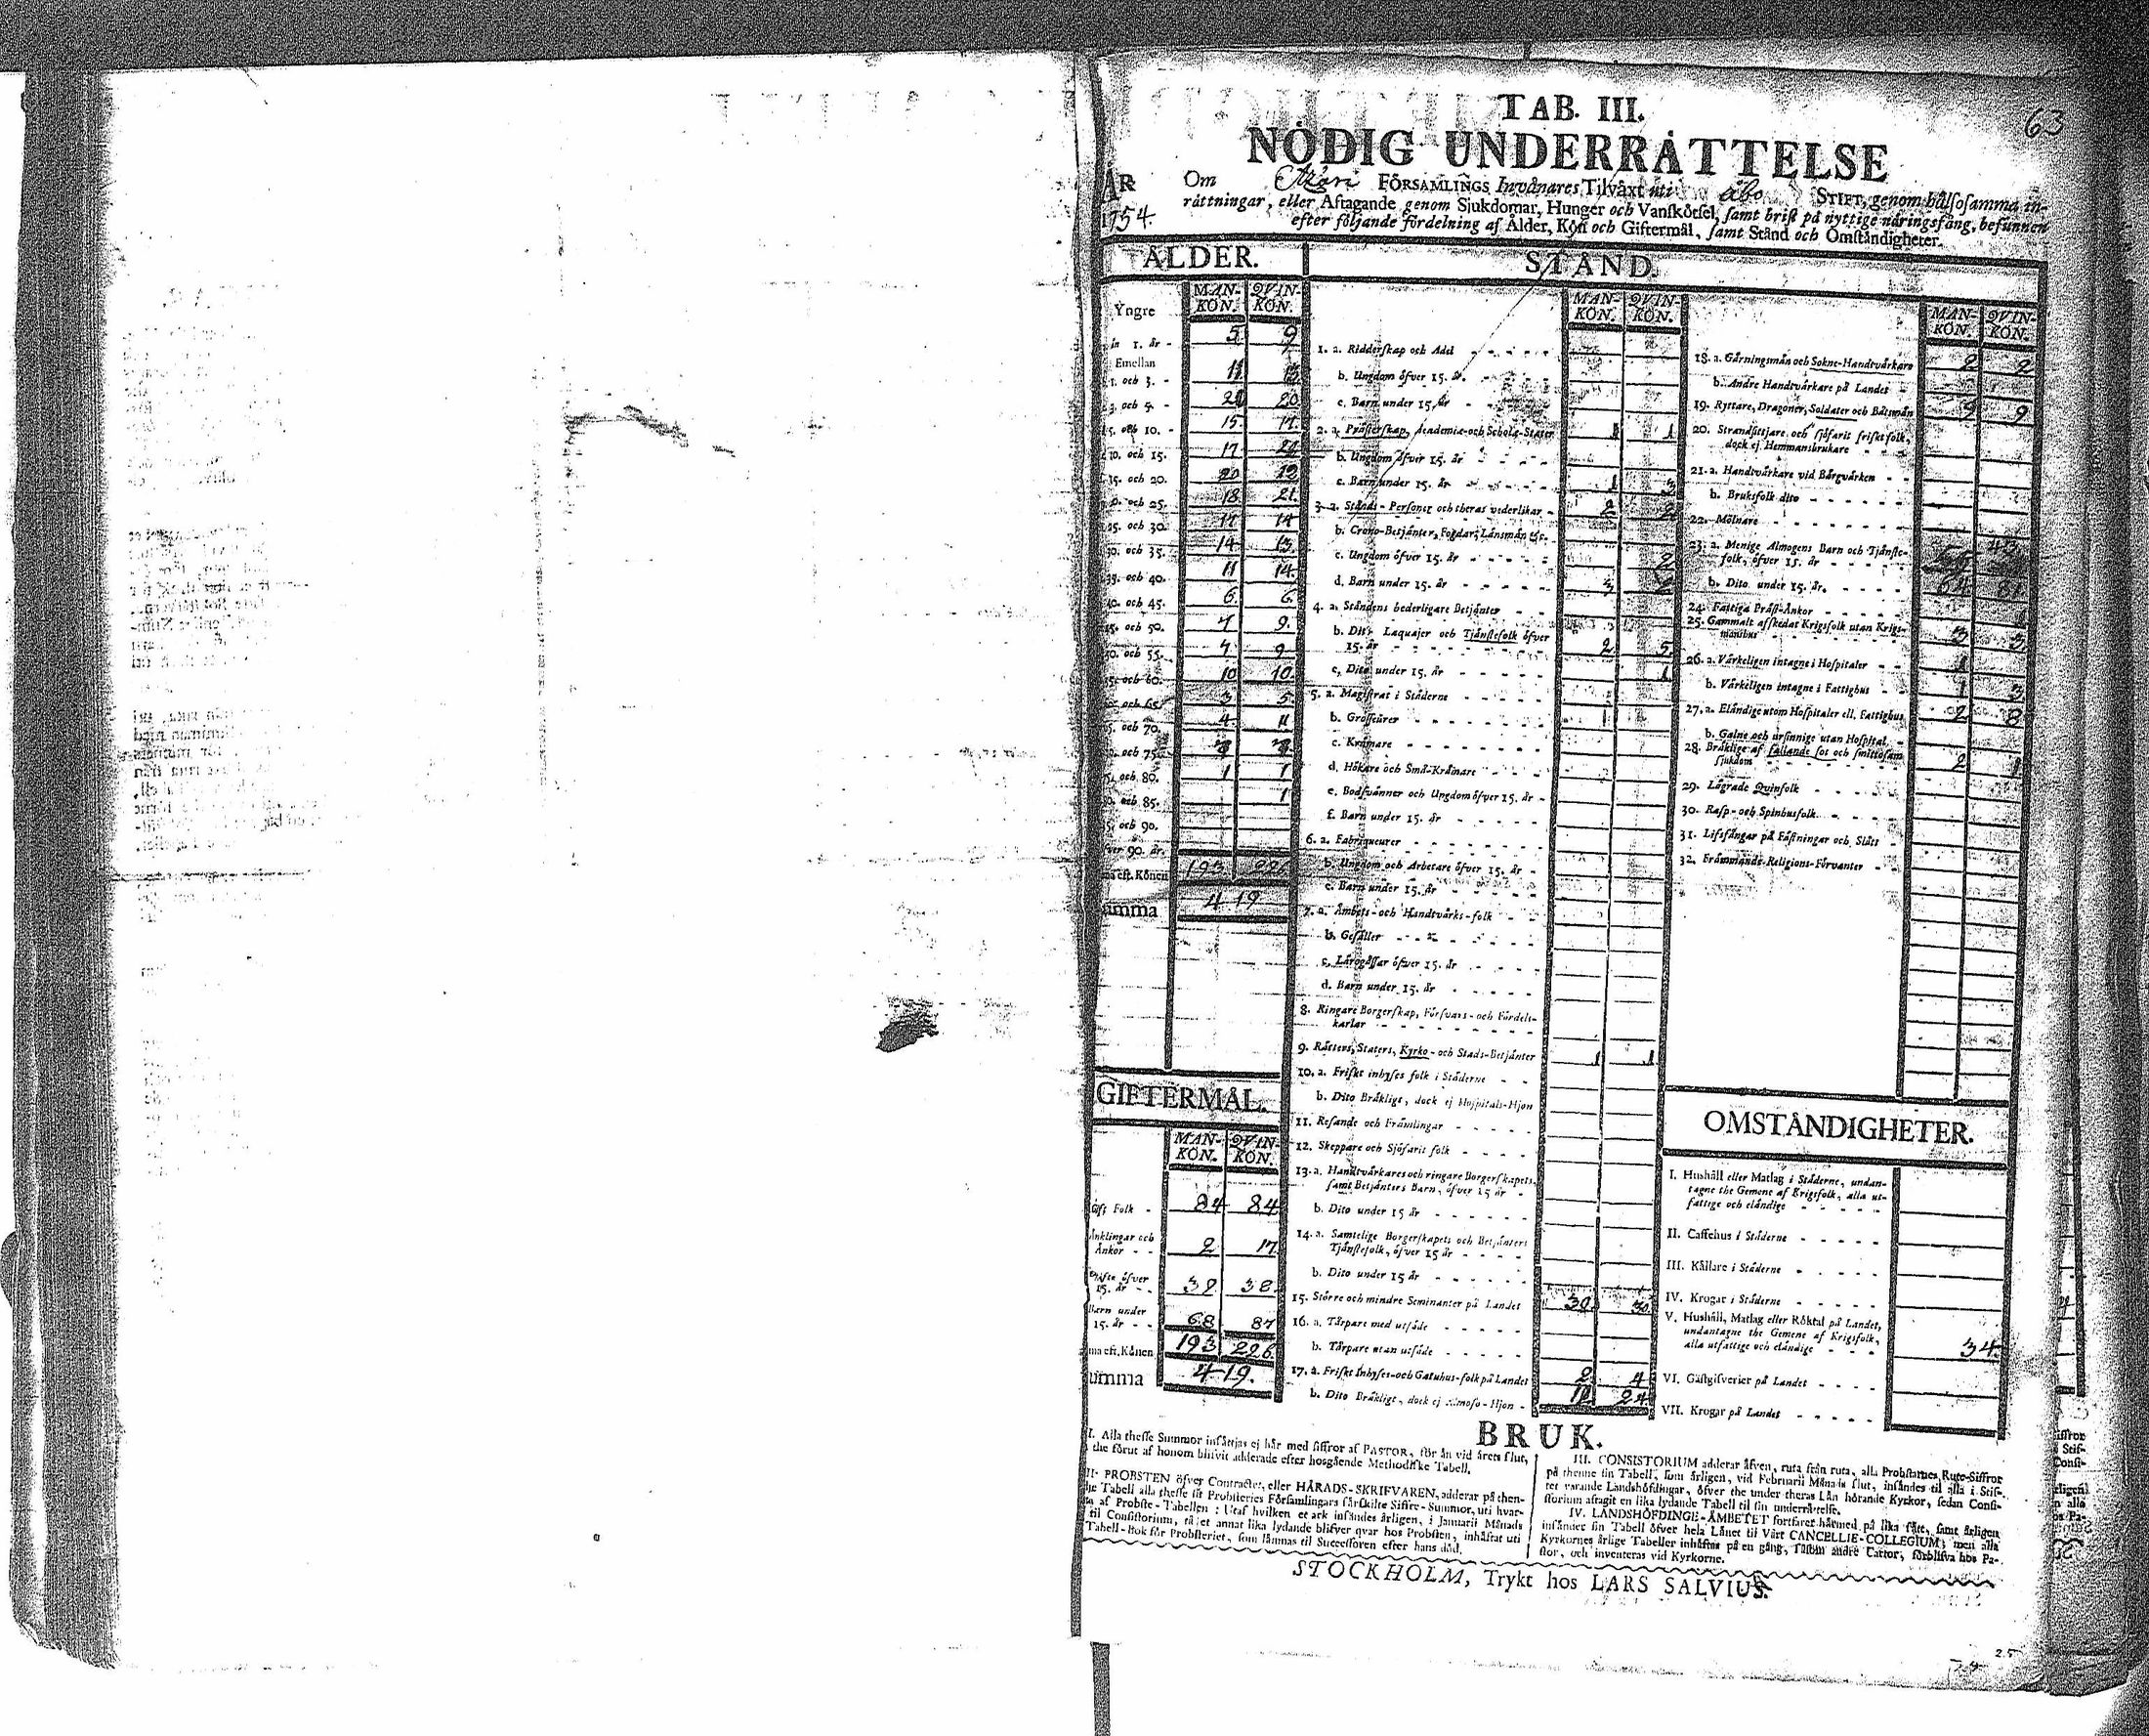 63
TAB. III.
NÖDIG UNDERRÅTTELSE
ÅR
1754.
Om FÖRSAMLINGS Invånares Tilvåxt uti Åbo STIFT, genom hålsosamma in-
råttningar, eller Aftagande genom Sjukdomar, Hunger och Vanskötsel, samt brist på nyttige näringsfång, befunnen
efter följande fördelning af Ålder, Kön och Giftermål, samt Stånd och Omståndigheter.
ÅLDER.
MAN-KÖN. QVIN-KÖN.
Yngre
än 1. år - 5 9
Emellan
1. och 3. - 11 13
3. och 5. - 20
5. och 10. - 15 17
10. och 15. 17
15. och 20. 20 19
och 25. 18 21
25. och 30. 17 14
30. och 35. 14 13
35. och 40. 11 14
40. och 45. 6 6
45. och 50. 7 9
50. och 55. 7 9
55. och 60. 10 10
och 65. 3 5
och 70. 4
och 75.
och 80. 1 1
och 85. 1
och 90.
över 90. år.
eft. Könen 193 226
Summa 419
GIFTERMÅL.
MAN-KÖN. QVIN-KÖN.
Gift Folk - 84 84
Änklingar och
Änkor - - 2 17
Ogifte öfver
15. år - - 39 38
Barn under
15. år - - 68 87
eft. Könen 193 226
Summa 419.
STÅND.
MAN-KÖN. QVIN-KÖN.
1. a. Ridderskap och Adel
b. Ungdom öfver 15. år.
c. Barn under 15. år
2. a. Prästerskap, Academiæ-och Scholæ-Stater 1 1
b. Ungdom öfver 15. år
c. Barn under 15. år 1 3
3. a. Stånds-Personer och theras vederlikar - 2 2
b. Crono-Betjänter, Fogdar, Länsmän &c.
c. Ungdom öfver 15. år 2
d. Barn under 15. år 3
4. a. Ståndens hederligare Betjänter
b. Dito Laquajer och Tjänstefolk öfver
15. år 2 5
c. Dito under 15. år 1
5. a. Magistrat i Städerne
b. Grosseurer
c. Krämare
d. Hökare och Små-Krämare
e. Bodsvänner och Ungdom öfver 15. år -
f. Barn under 15. år
6. a. Fabriqueurer
b. Ungdom och Arbetare öfver 15. år -
c. Barn under 15. år
7. a. Ämbets-och Handtvärks-folk
b. Gesäller
c. Lärogåssar öfver 15. år
d. Barn under 15. år
8. Ringare Borgerskap, Försvars-och Fördels-
karlar
9. Råttens, Staters, Kyrko-och Stads-Betjänter 1 1
10. a. Friskt inhyses folk i Städerne
b. Dito Bräkligt, dock ej Hospitals-Hjon
11. Resande och Främlingar
12. Skeppare och Sjöfarit folk
13. a. Handtvärkares och ringare Borgerskapets,
samt Betjänters Barn, öfver 15 år
b. Dito under 15 år
14. a. Samtelige Borgerskapets och Betjänters
Tjänstefolk, öfver 15 år
b. Dito under 15 år
15. Större och mindre Seminanter på Landet 30 30
16. a. Tårpare med utsäde
b. Tårpare utan utsäde
17. a. Friskt Inhyses-och Gatuhus-folk på Landet 2 4
b. Dito Bräkligt, dock ej Almoso-Hjon - 24
MAN-KÖN. QVIN-KÖN.
18. a. Gärningsmän och Sokne-Handtvärkare 2 2
b. Andre Handtvärkare på Landet
19. Ryttare, Dragoner, Soldater och Båtsmän 9 9
20. Strandsittjare och sjöfarit friskt folk,
dock ej Hemmansbrukare
21. a. Handtvärkare vid Bärgvärken
b. Bruksfolk dito
22. Mölnare
23. a. Menige Almogens Barn och Tjänste-
folk, öfver 15. år
b. Dito under 15. år. 64 81
24. Fattiga Präst-Änkor
25. Gammalt afskedat Krigsfolk utan Krigs-
manshus 3 3
26. a. Värkeligen intagne i Hospitaler 1
b. Värkeligen intagne i Fattighus 1 3
27. a. Eländige utom Hospitaler ell. Fattighus 2 8
b. Galne och ursinnige utan Hospital
28. Bräklige af fallande sot och smittosam
sjukdom 2 1
29. Lägrade Qvinfolk
30. Rasp-och Spinhusfolk
31. Lifsfångar på Fästningar och Slått
32. Främmande Religions-Förvanter
OMSTÅNDIGHETER.
I. Hushåll eller Matlag i Städerne, undan-
tagne the Gemene af Krigsfolk, alla ut-
fattige och eländige
II. Caffehus i Städerne
III. Kållare i Städerne
IV. Krogar i Städerne
V. Hushåll, Matlag eller Röktal på Landet,
undantagne the Gemene af Krigsfolk,
alla utfattige och eländige 34.
VI. Gästgifverier på Landet
VII. Krogar på Landet
BRUK.
I. Alla thesse Summor insättjas ej här med siffror af PASTOR, för än vid årets slut,
the förut af honom blifvit adderade efter hosgående Methodiske Tabell.
II. PROBSTEN öfver Contractet, eller HÄRADS-SKRIFVAREN, adderar på then-
ne Tabell alla thesse sit Probsteries Församlingars särskilte Siffre-Summor, uti hvar-
af Probste-Tabellen: Utaf hvilken et ark insändes årligen, i Januarii Månads
til Consistorium, et annat lika lydande blifver qvar hos Probsten, inhäftat uti
Tabell-Bok för Probsteriet, som lämnas til Successoren efter hans död.
III. CONSISTORIUM adderar äfven, ruta från ruta, alla Probstarnes Rute-Siffror
på thenne sin Tabell, som årligen, vid Februarii Månads slut, insändes til alla i Stif-
tet varande Landshöfdingar, öfver the under theras Län hörande Kyrkor, sedan Consi-
storium aftagit en lika lydande Tabell til sin underrättelse.
IV. LANDSHÖFDINGE-ÄMBETET fortfaret härmed på lika sätt, samt årligen
insänder sin Tabell öfver hela Länet til Vårt CANCELLIE-COLLEGIUM; men alla
Kyrkornes årlige Tabeller inhäftas på en gång, såsom andre Cartor, förblifva hos Pa-
stor, och inventeras vid Kyrkorne.
STOCKHOLM, Trykt hos LARS SALVIUS.
25